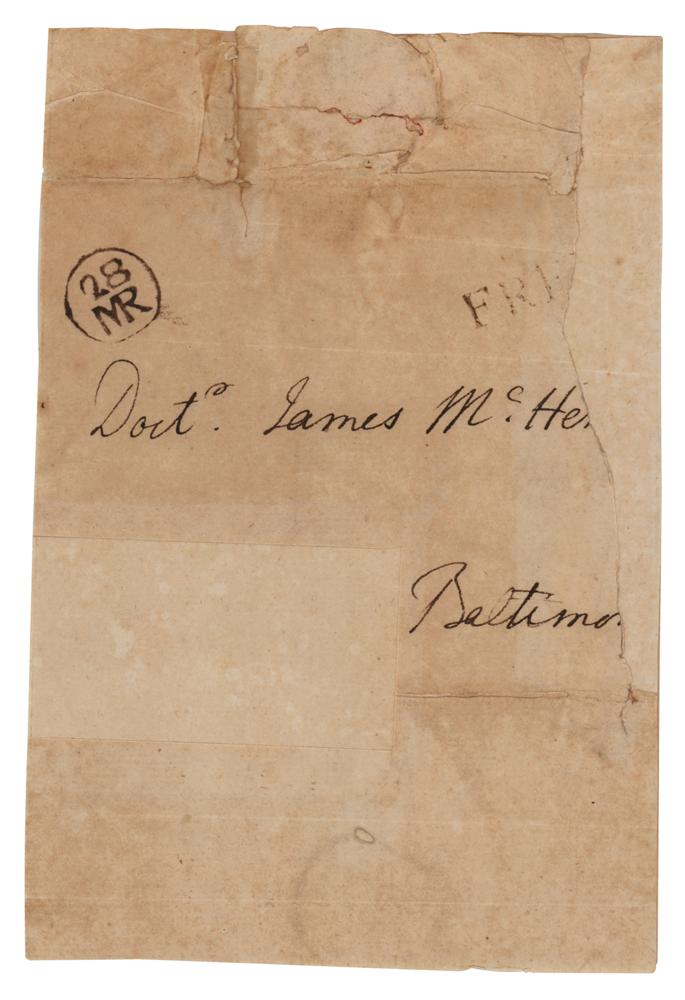 28
MR
FRE
Doctr. James Mc. He
Baltimo